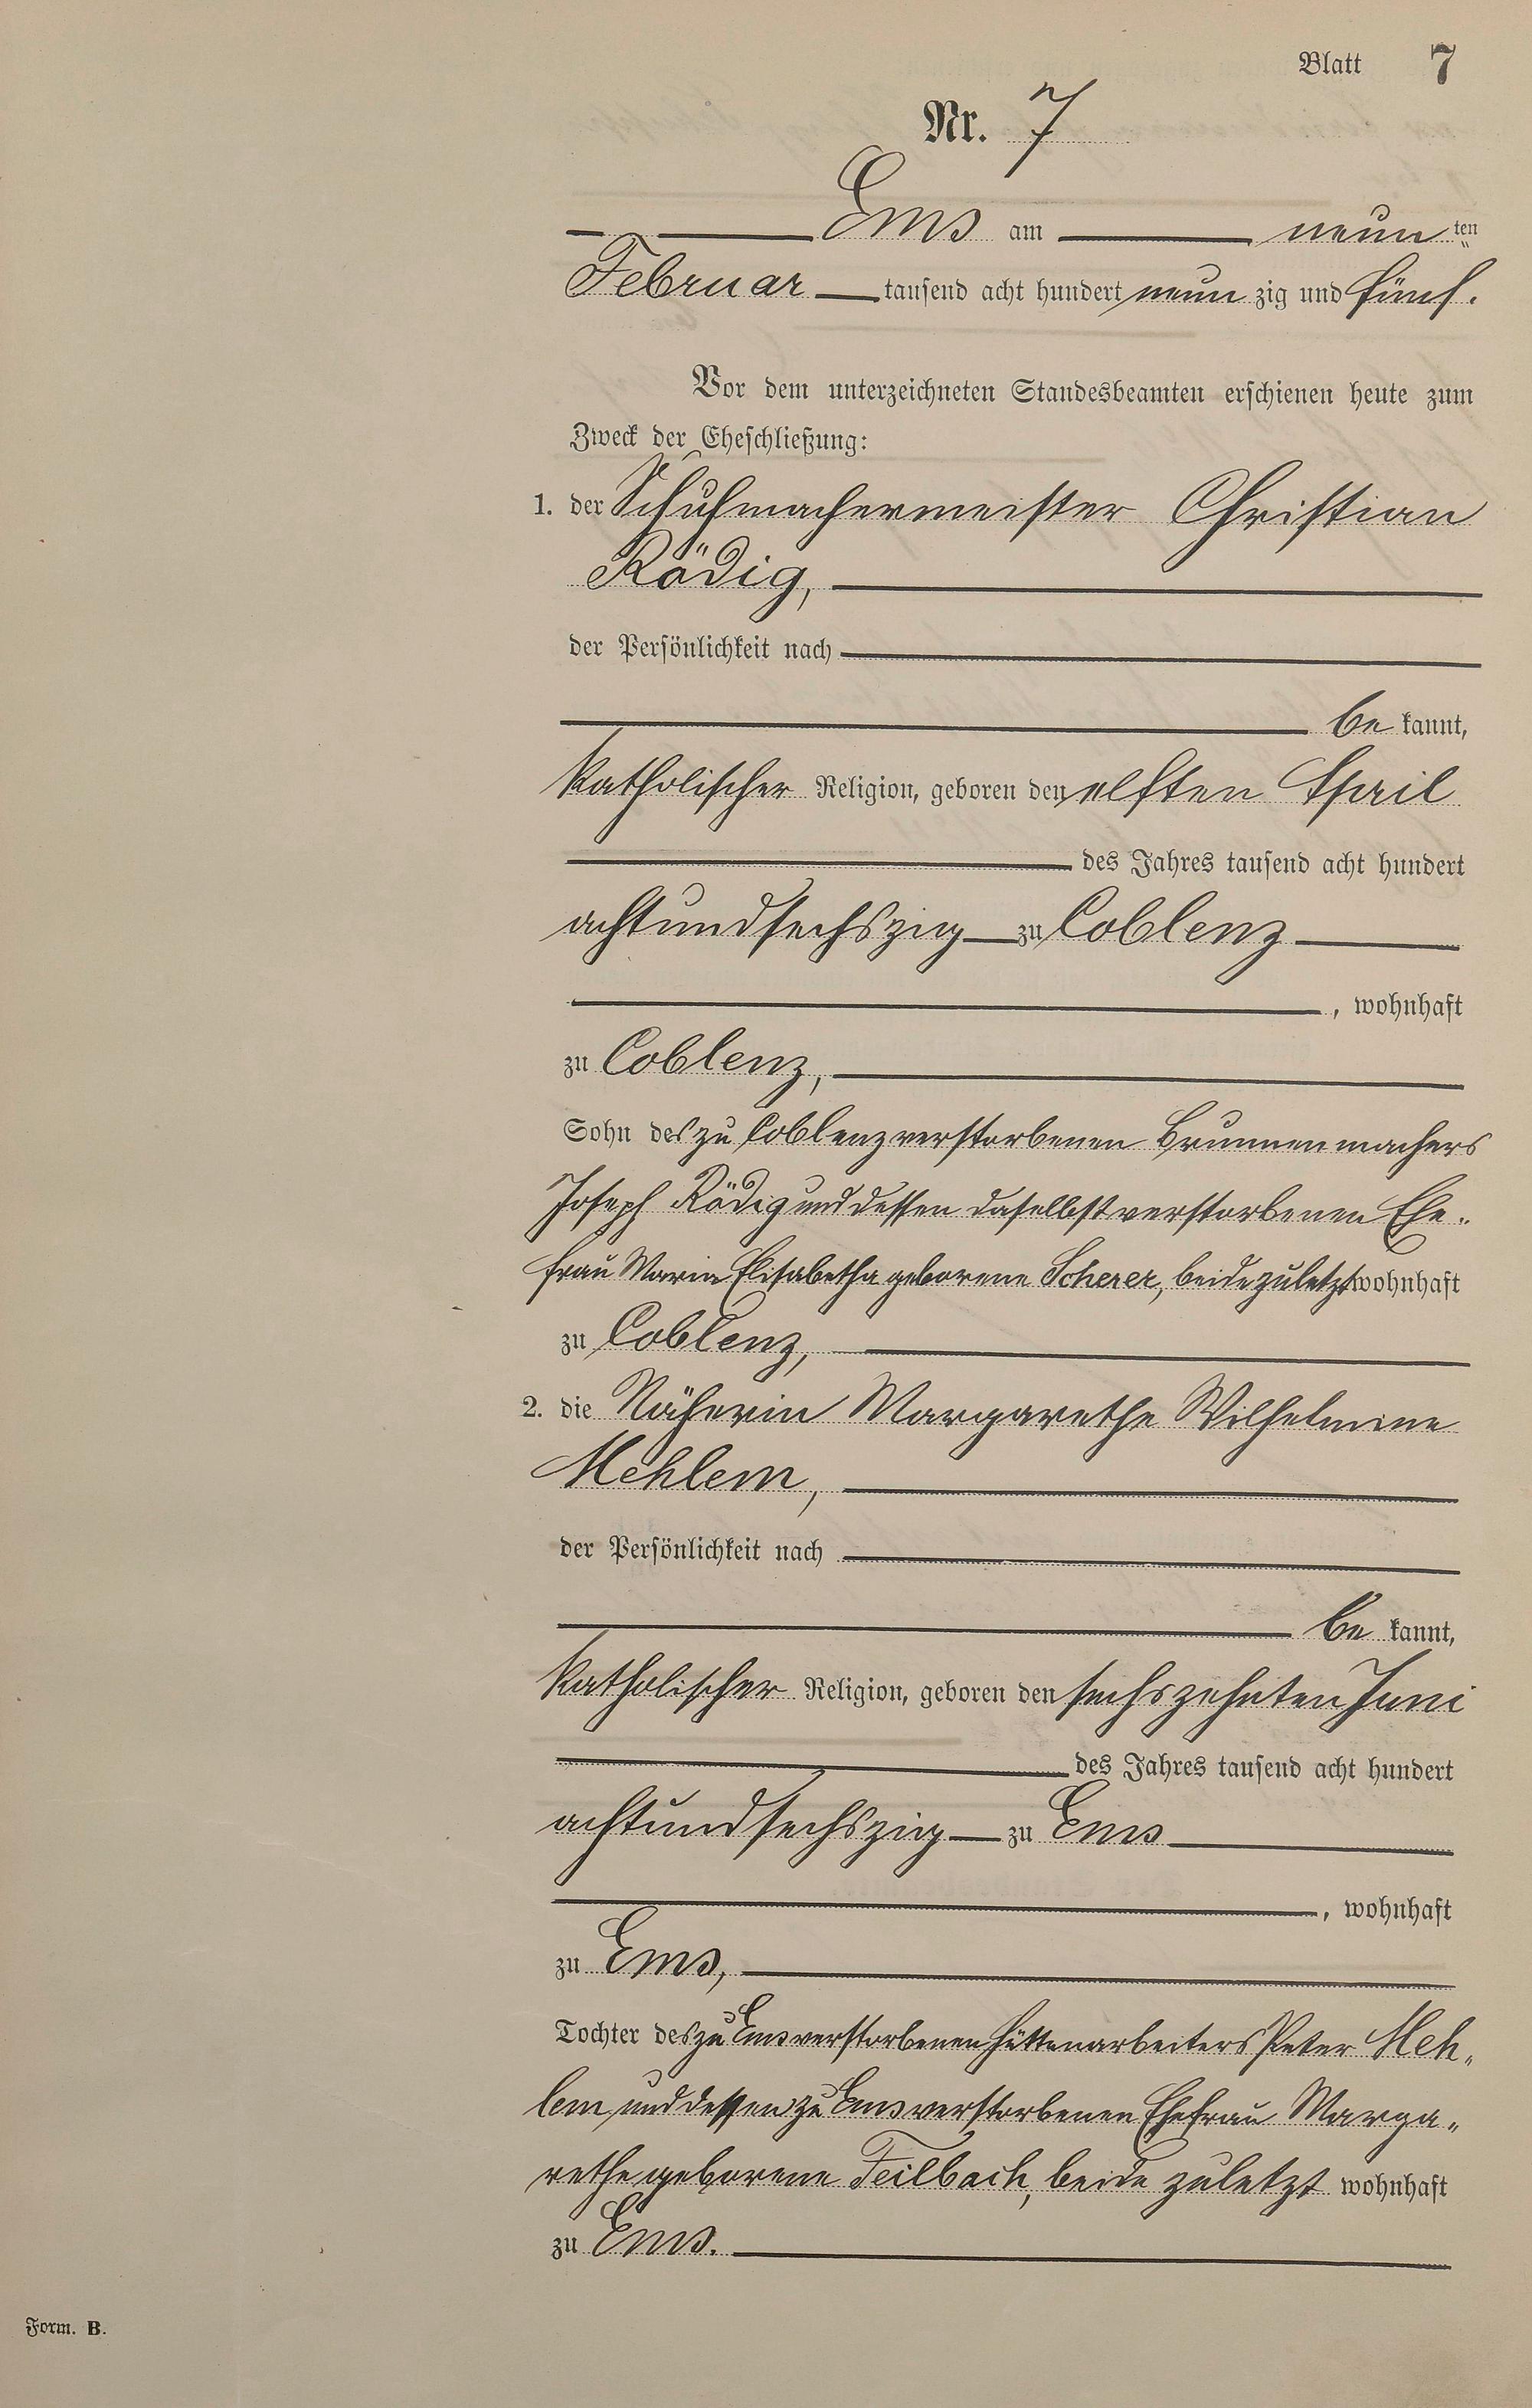 Blatt 7
Nr. 7
Ems am neun ten
Februar tausend acht hundert neun zig und fünf.
Vor dem unterzeichneten Standesbeamten erschienen heute zum
Zweck der Eheschließung:
1. der Schuhmachermeister Christian
Rödig,
der Persönlichkeit nach
be kannt,
katholischer Religion, geboren den elften April
des Jahres tausend acht hundert
achtundsechszig zu Coblenz
, wohnhaft
zu Coblenz,
Sohn des zu Coblenz verstorbenen Brunnenmachers
Joseph Rödig und dessen daselbst verstorbenen Ehe-
frau Maria Elisabetha geborene Scherer, beide zuletzt wohnhaft
zu Coblenz,
2. die Näherin Margarethe Wilhelmine
Mehlem,
der Persönlichkeit nach
be kannt,
katholischer Religion, geboren den sechszehnten Juni
des Jahres tausend acht hundert
achtundsechszig zu Ems
, wohnhaft
zu Ems,
Tochter des zu Ems verstorbenen Hüttenarbeiters Peter Meh-
lem und dessen zu Ems verstorbenen Ehefrau Marga-
rethe geborene Feilbach, beide zuletzt wohnhaft
zu Ems.
Form. B.